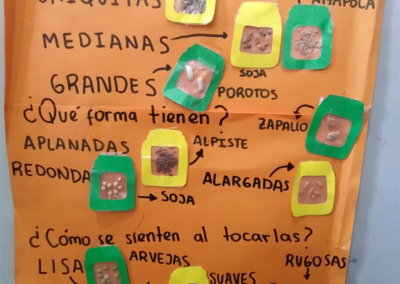 CHIQUITAS
AMAPOLA
MEDIANAS
SOJA
GRANDES
POROTOS
¿Qué forma tienen?
ZAPALLO
APLANADAS
ALPISTE
REDONDA
ALARGADAS
SOJA
¿Cómo se sienten al tocarlas?
LISA
ARVEJAS
RUGOSAS
SUAVES